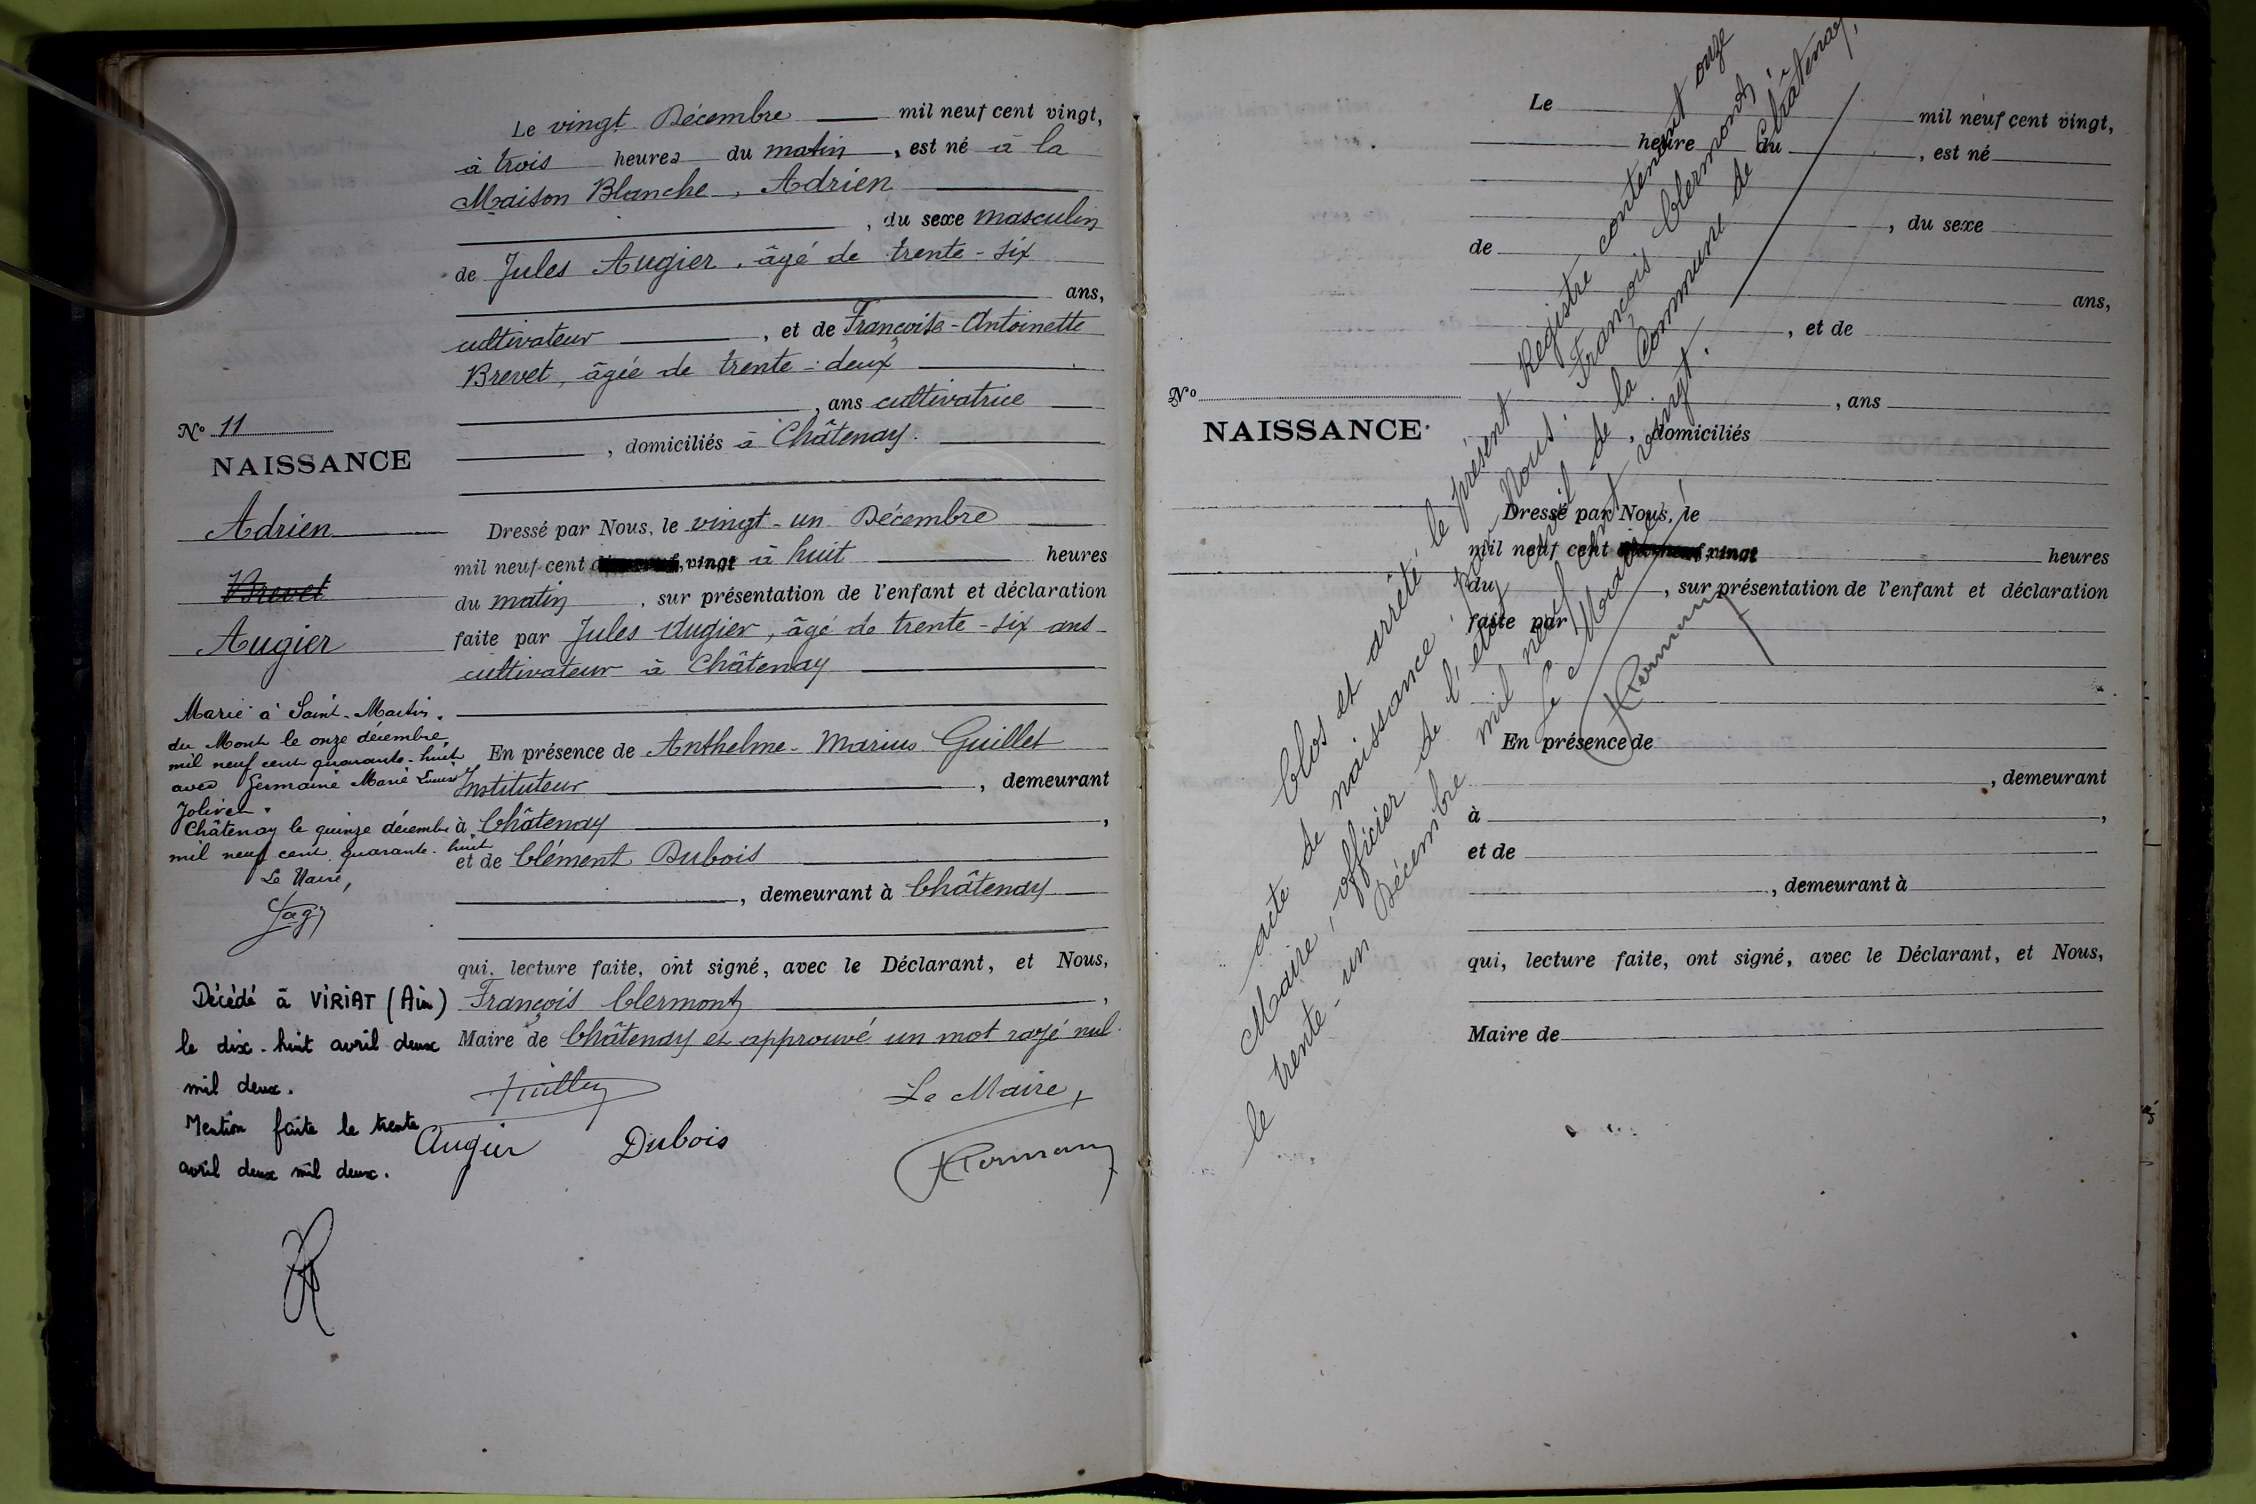 Le vingt Décembre mil neuf cent vingt,
à trois heures du matin, est né à la
Maison Blanche, Adrien
, du sexe masculin
de Jules Augier, âgé de trente-six
ans,
cultivateur, et de Françoise-Antoinette
Brevet, âgée de trente-deux
, ans cultivatrice
, domiciliés à Châtenay.
Dressé par Nous, le vingt-un Décembre
mil neuf cent vingt à huit heures
du matin, sur présentation de l'enfant et déclaration
faite par Jules Augier, âgé de trente-six ans
cultivateur à Châtenay
En présence de Anthelme-Marius Guillet
Instituteur, demeurant
à Châtenay,
et de Clément Dubois
, demeurant à Châtenay
qui, lecture faite, ont signé, avec le Déclarant, et Nous,
François Clermont,
Maire de Châtenay et approuvé un mot rayé nul.
Le Maire,
Augier Dubois
N° 11
NAISSANCE
Adrien
Brevet
Augier
Marié à Saint-Martin
du Mont le onze décembre
mil neuf cent quarante-huit
avec Germaine Marie Louise
Jolivet.
Châtenay le quinze décembre
mil neuf cent quarante-huit
Le Maire,
Décédé à VIRIAT (Ain)
le dix-huit avril deux
mil deux.
Mention faite le trente
avril deux mil deux.
Le mil neuf cent vingt,
heure du , est né
, du sexe
de
ans,
, et de
, ans
, domiciliés
N°
NAISSANCE
Dressé par Nous, le
mil neuf cent vingt heures
du , sur présentation de l'enfant et déclaration
faite par
En présence de
, demeurant
à ,
et de
, demeurant à
qui, lecture faite, ont signé, avec le Déclarant, et Nous,
Maire de
Clos et arrêté le présent Registre contenant onze
acte de naissance, par Nous: François Clermont,
Maire, officier de l'état civil de la Commune de Châtenay,
le trente-un Décembre mil neuf cent vingt.
Le Maire,